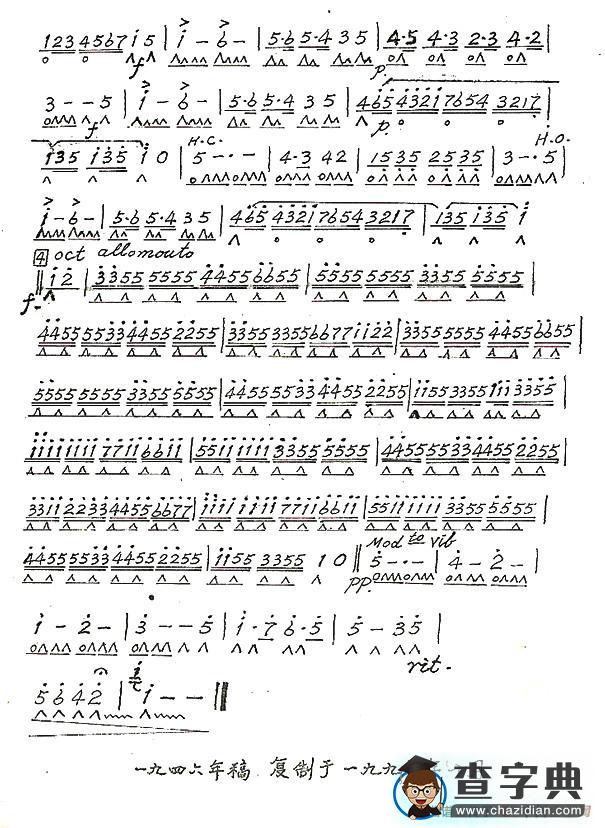 1234567i5 | i - 6 - | 5·65·4 35 | 4·5 4·3 2·3 4·2 |
f p.
3 - - 5 | i - 6 - | 5·65·4 35 | 465 432i 7654 3217 |
f p.
H.C. H.O.
i35 i35 i 0 | 5 - · - | 4·3 42 | 1535 2535 | 3 - · 5 |
i - 6 - | 5·6 5·4 35 | 465 432i 7654 3217 | i35 i35 i |
4 oct allomouto
f i2 | 3355 5555 4455 6655 | 5555 5555 3355 5555 |
4455 5533 4455 2255 | 3355 3355 6677 1122 | 3355 5555 4455 6655 |
5555 5555 3355 5555 | 4455 5533 4455 2255 | 1155 3355 11 3355 |
iiii iiii 77ii 66ii | 55ii iiii 3355 5555 | 4455 5533 4455 2255 |
3311 2233 4455 6677 | iiii iiii 77ii 66ii | 55ii iiii 3355 5555 |
Mod to Vib
4455 5533 4455 2255 | 1155 3355 1 0 || 5 - · - | 4 - 2 - |
pp.
i - 2 - | 3 - - 5 | i·7 6·5 | 5 - 35 |
rit.
5 6 4 2 | i - - ||
一九四六年稿 复制于一九九
查字典
www.chazidian.com